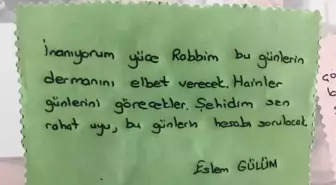 İnanıyorum yüce Rabbim bu günlerin
dermanını elbet verecek. Hainler
günlerini görecekler. Şehidim sen
rahat uyu, bu günlerin hesabı sorulacak.
Eslem GÜLÜM